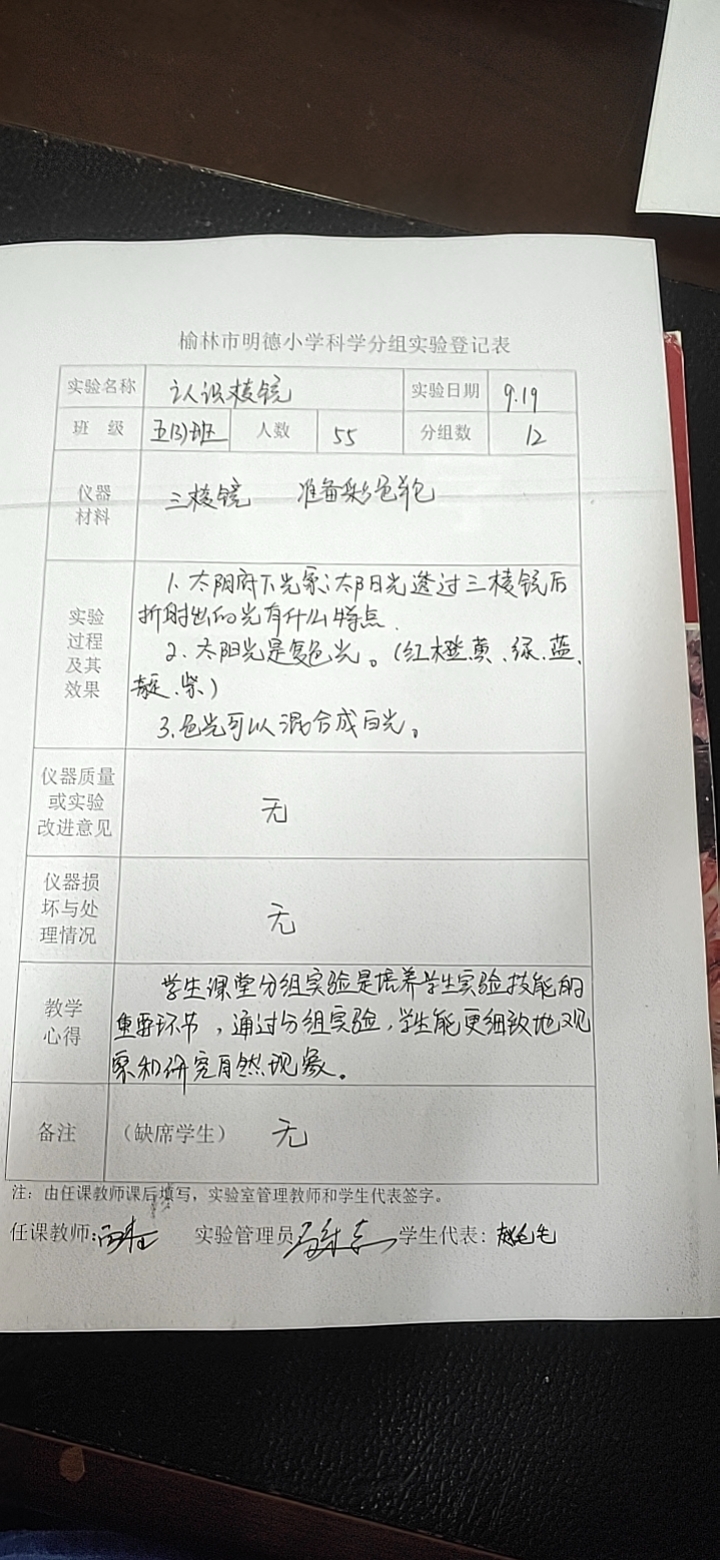 榆林市明德小学科学分组实验登记表
实验名称 认识棱镜 实验日期 9.19
班 级 五(3)班 人数 55 分组数 12
仪器
材料
三棱镜 准备彩色轮
实验
过程
及其
效果
1. 太阳府下光象:太阳光透过三棱镜后
折射出的光有什么特点.
2. 太阳光是复色光。(红橙黄、绿.蓝.
靛.紫)
3.色光可以混合成白光。
仪器质量
或实验
改进意见
无
仪器损
坏与处
理情况
无
教学
心得
学生课堂分组实验是培养学生实验技能的
重要环节,通过分组实验,学生能更细致地观
察和研究自然现象。
备注 (缺席学生) 无
注:由任课教师课后填写,实验室管理教师和学生代表签字。
任课教师: 实验管理员 学生代表: